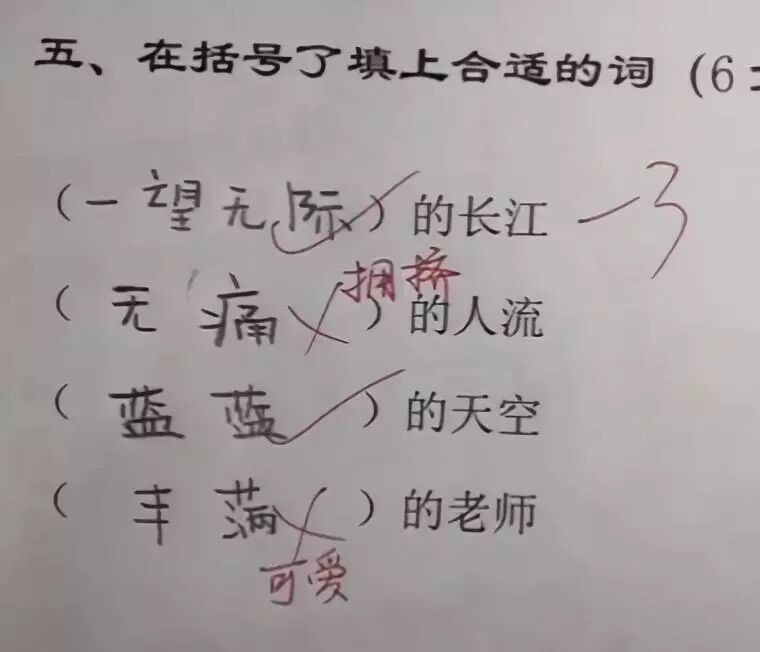 五、在括号了填上合适的词 (6
(一望无际)的长江 -3
(无痛)的人流
拥挤
(蓝蓝)的天空
(丰满)的老师
可爱